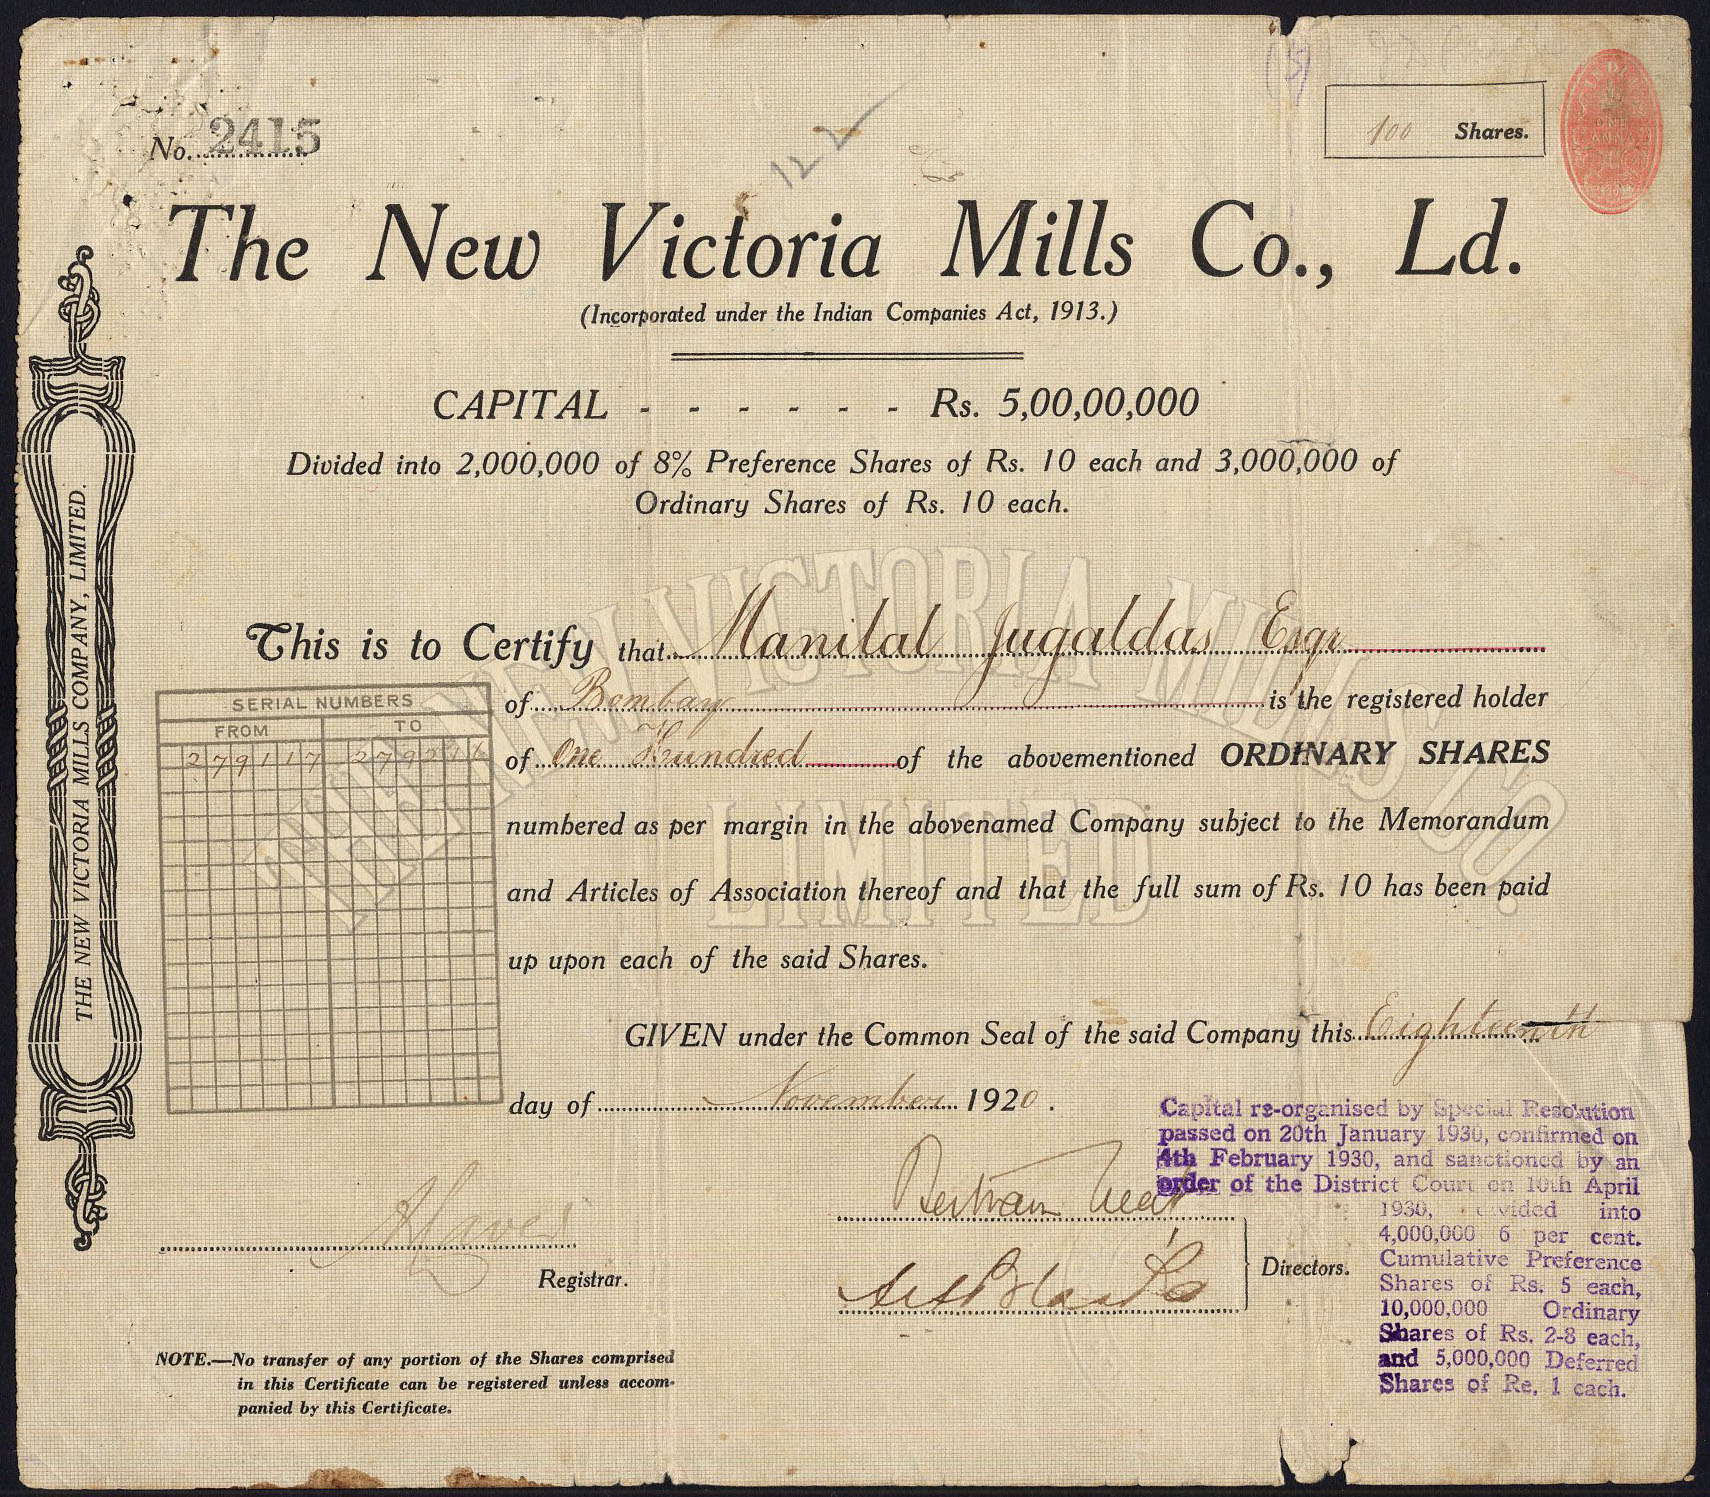 No. 2415
100 Shares.
ONE ANNA
122
The New Victoria Mills Co., Ld.
(Incorporated under the Indian Companies Act, 1913.)
CAPITAL - - - - - - Rs. 5,00,00,000
Divided into 2,000,000 of 8% Preference Shares of Rs. 10 each and 3,000,000 of
Ordinary Shares of Rs. 10 each.
THE NEW VICTORIA MILLS COMPANY, LIMITED.
THE NEW VICTORIA MILLS CO.
LIMITED
This is to Certify that Manilal Jugaldas Esqr
of Bombay is the registered holder
of One Hundred of the abovementioned ORDINARY SHARES
numbered as per margin in the abovenamed Company subject to the Memorandum
and Articles of Association thereof and that the full sum of Rs. 10 has been paid
up upon each of the said Shares.
SERIAL NUMBERS
FROM TO
279117 279216
GIVEN under the Common Seal of the said Company this Eighteenth
day of November 1920.
Capital re-organised by Special Resolution
passed on 20th January 1930, confirmed on
4th February 1930, and sanctioned by an
order of the District Court on 10th April
1930, divided into
4,000,000 6 per cent.
Cumulative Preference
Shares of Rs. 5 each,
10,000,000 Ordinary
Shares of Rs. 2-8 each,
and 5,000,000 Deferred
Shares of Re. 1 each.
Registrar.
Directors.
NOTE.—No transfer of any portion of the Shares comprised
in this Certificate can be registered unless accom-
panied by this Certificate.